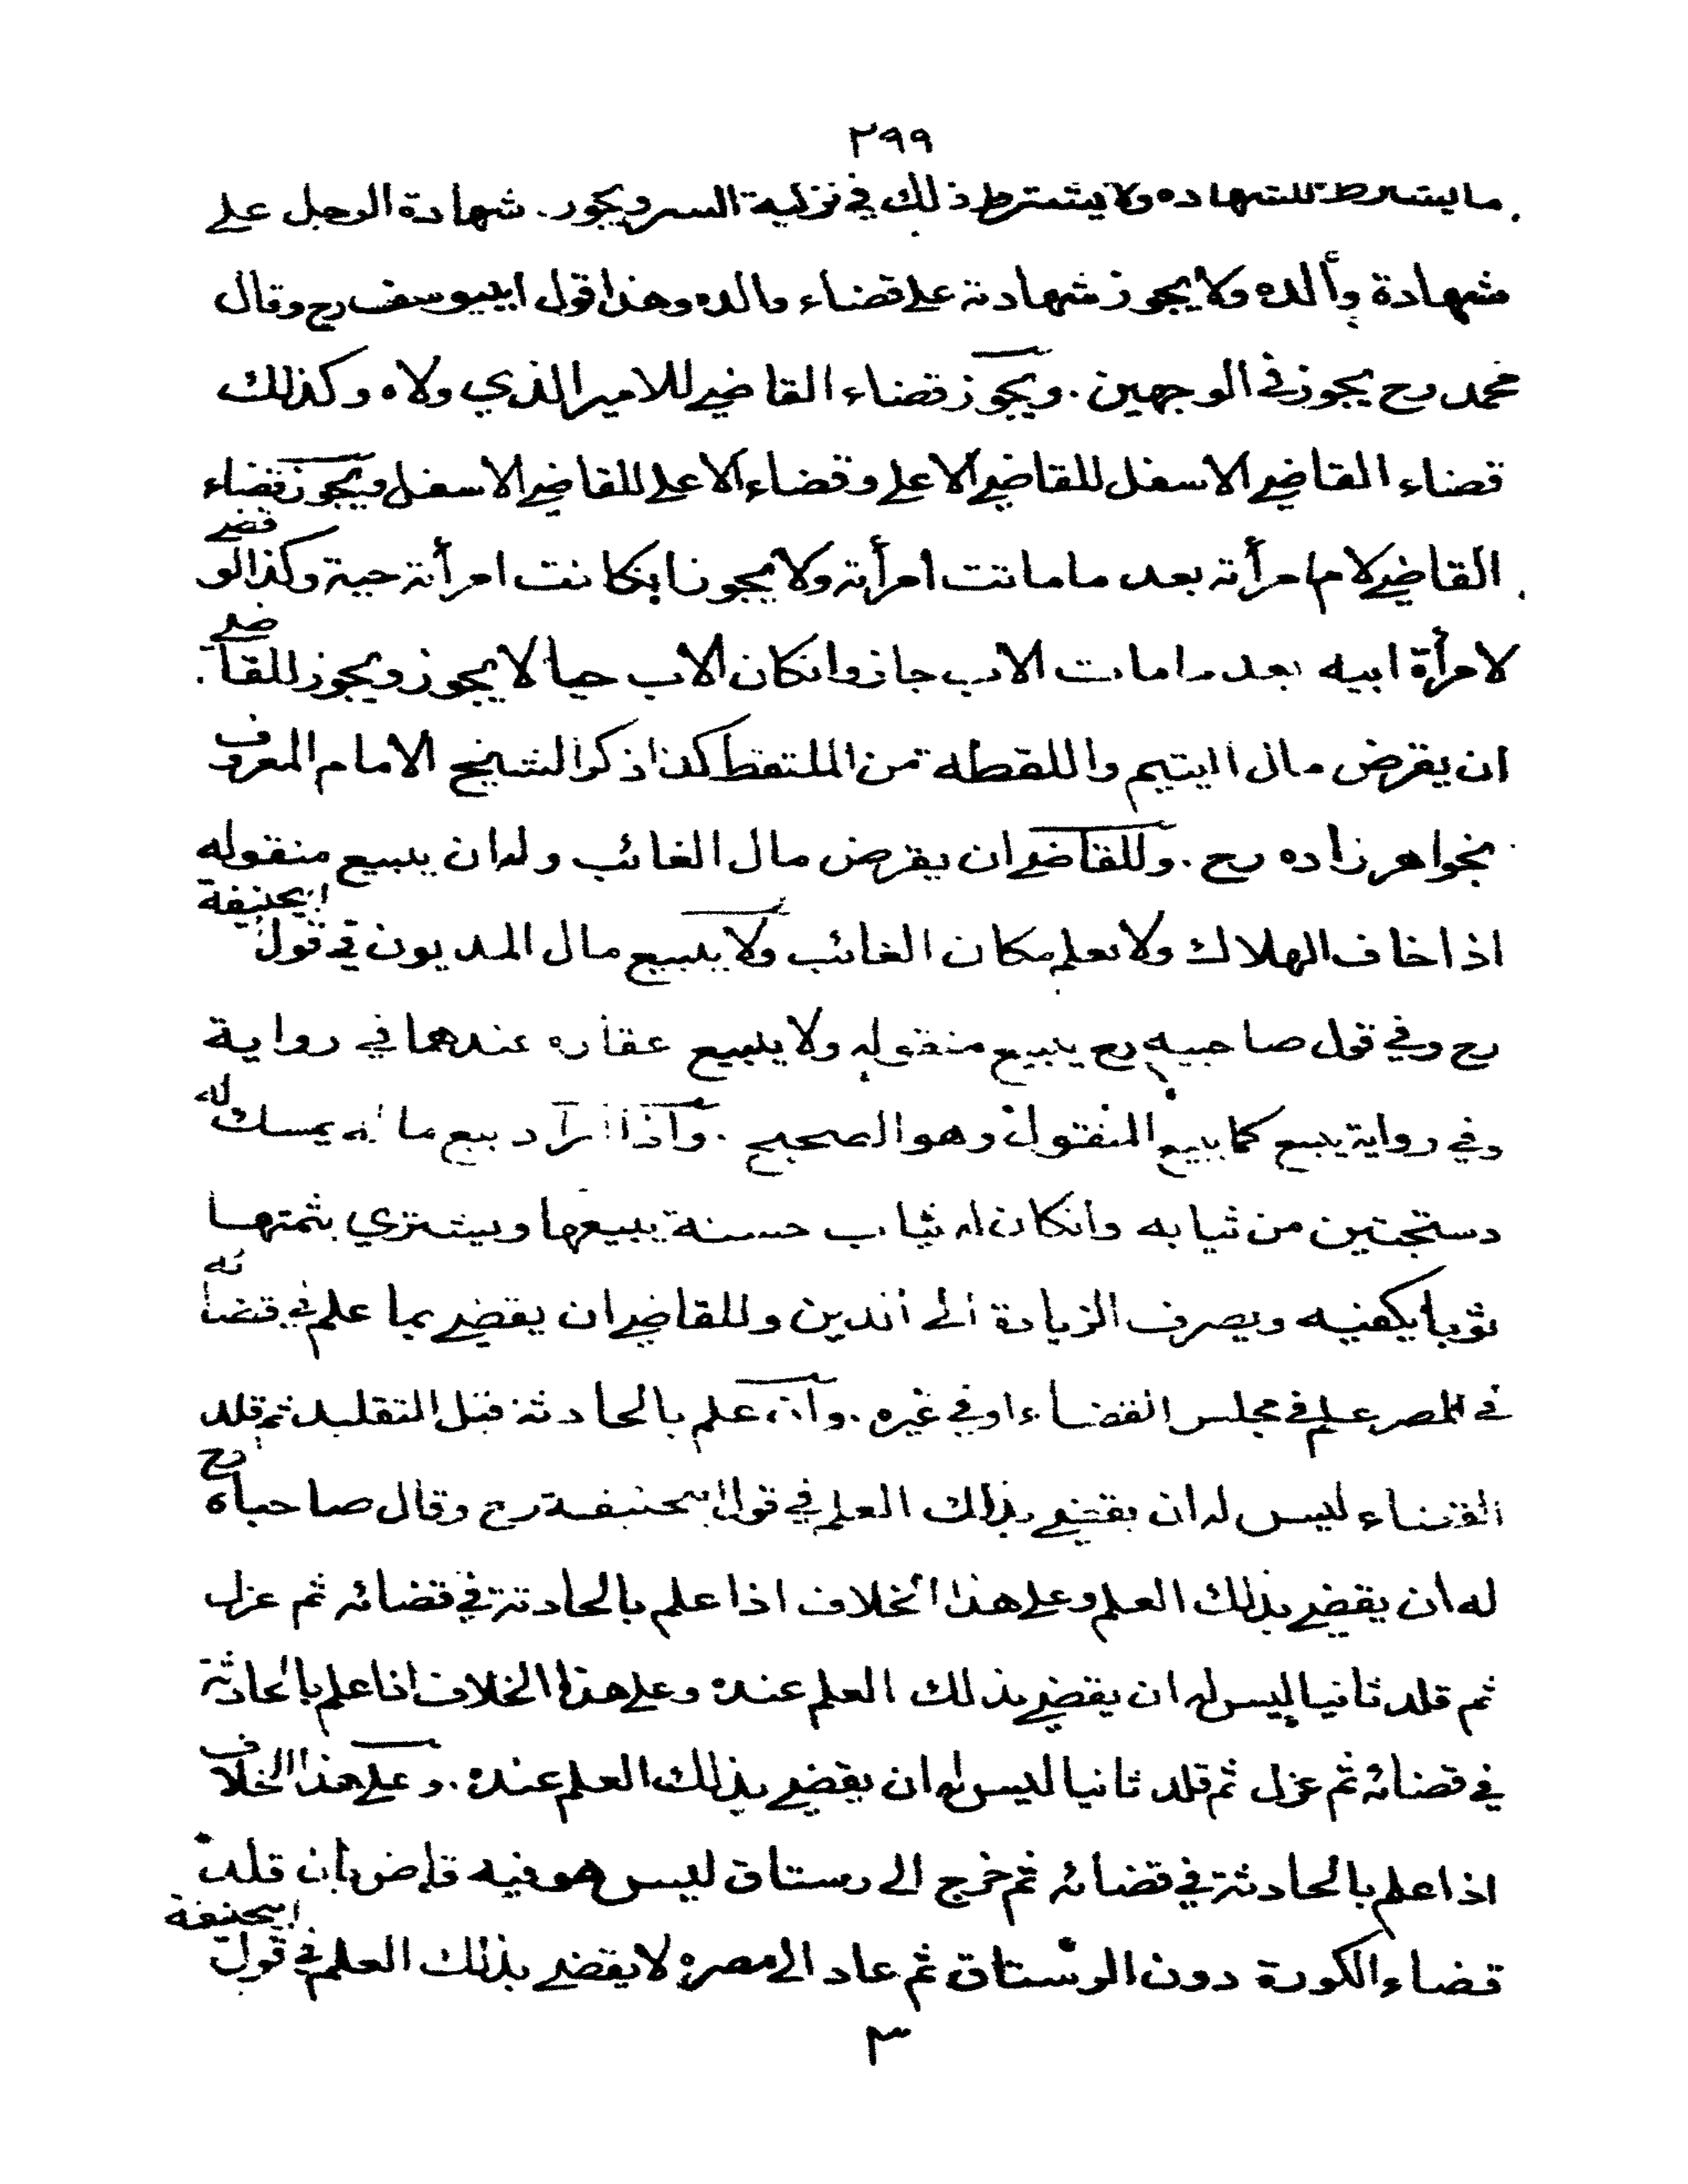 ٢٩٩
ما يشترط للشهادة ولا يشترط ذلك في تزكية السر ويجوز . شهادة الرجل على
شهادة والده ولا يجوز شهادته على قضاء والده وهذا قول ابيوسف رح وقال
محمد رح يجوز في الوجهين . ويجوز قضاء القاضي للامير الذي ولاه وكذلك
قضاء القاضي الاسفل للقاضي الاعلى وقضاء الاعلى للقاضي الاسفل ويجوز قضاء
القاضي لام امرأته بعد ما ماتت امرأته ولا يجوز انكانت امرأته حية وكذا لو قضى
لامرأة ابيه بعد ما مات الاب جاز وانكان الاب حيا لا يجوز ويجوز للقاضي
ان يقرض مال اليتيم واللقطة من الملتقط كذا ذكر الشيخ الامام المعروف
بخواهر زاده رح . وللقاضي ان يقرض مال الغائب وله ان يبيع منقوله
اذا خاف الهلاك ولا يعلم مكان الغائب ولا يبيع مال المديون في قول ابيحنيفة
رح وفي قول صاحبيه رح يبيع منقوله ولا يبيع عقاره عندهما في رواية
وفي رواية يبيع كما يبيع المنقول وهو الصحيح . واذا اراد بيع ماله يمسك له
دستجتين من ثيابه وانكان له ثياب حسنة يبيعها ويشتري بثمنها
ثوبا يكفيه ويصرف الزيادة الى الدين وللقاضي ان يقضي بما علم في قضائه
في المصر علم في مجلس القضاء او في غيره . وان علم بالحادثة قبل التقليد ثم قلد
القضاء ليس له ان يقضي بذلك العلم في قول ابيحنيفة رح وقال صاحباه رح
له ان يقضي بذلك العلم وعلى هذا الخلاف اذا علم بالحادثة في قضائه ثم عزل
ثم قلد ثانيا ليس له ان يقضي بذلك العلم عنده وعلى هذا الخلاف اذا علم بالحادثة
في قضائه ثم عزل ثم قلد ثانيا ليس له ان يقضي بذلك العلم عنده . وعلى هذا الخلاف
اذا علم بالحادثة في قضائه ثم خرج الى رستاق ليس هو فيه قاض بان قلد
قضاء الكورة دون الرستاق ثم عاد الى مصره لا يقضي بذلك العلم في قول ابيحنيفة
٣